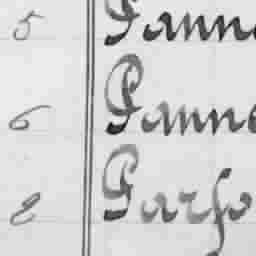 5 Panne
6 Panne
8 Parso